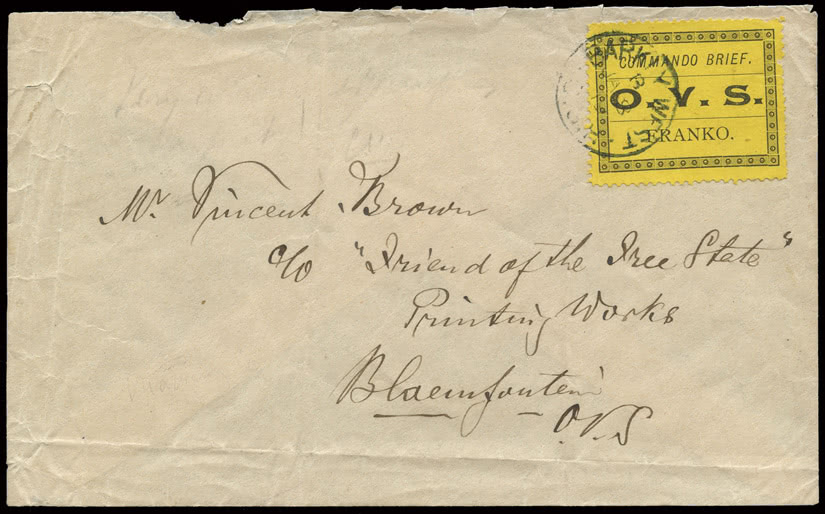 COMMANDO BRIEF.
O. V. S.
FRANKO.
BARKLY WEST
Mr. Vincent Brown
c/o "Friend of the Free State"
Printing Works
Bloemfontein
O.V.S